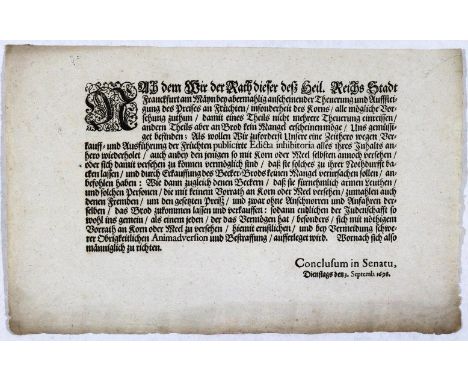 NAch dem Wir der Rath dieser deß Heil. Reichs Stadt
Franckfurt am Mäyn bey abermahlig anscheinender Theurung und Auffstei-
gung des Preises an Früchten / insonderheit des Korns / alle mögliche Vor-
sehung zuthun / damit eines Theils nicht mehrere Theurung einreissen /
andern Theils aber an Brod kein Mangel erscheinen möge / Uns gemüssi-
get befinden; Als wollen Wir zuforderst Unsere eine Zeithero wegen Ver-
kauff- und Ausführung der Früchten publicirte Edicta inhibitoria alles ihres Inhalts an-
hero wiederholet / auch anbey den jenigen so mit Korn oder Meel selbsten annoch versehen /
oder sich damit versehen zu können vermöglich sind / daß sie solches zu ihrer Nothdurfft ba-
cken lassen / und durch Erkauffung des Becker-Brods keinen Mangel verursachen sollen / an-
befohlen haben: Wie dann zugleich denen Beckern / daß sie fürnehmlich armen Leuthen /
und solchen Personen / die mit keinem Vorrath an Korn oder Meel versehen / zumahlen auch
denen Fremden / um den gesetzten Preiß / und zwar ohne Anschnorren und Anfahren der-
selben / das Brod zukommen lassen und verkauffen: sodann endlichen der Judenschafft so
wohl ins gemein / als einem jeden / der das Vermögen hat / besonders / sich mit nöthigem
Vorrath an Korn oder Meel zu versehen / hiemit ernstlichen / und bey Vermeidung schwe-
rer Obrigkeitlichen Animadversion und Bestraffung / aufferleget wird. Wornach sich also
männiglich zu richten.
Conclusum in Senatu,
Dienstags den 3. Septemb. 1698.